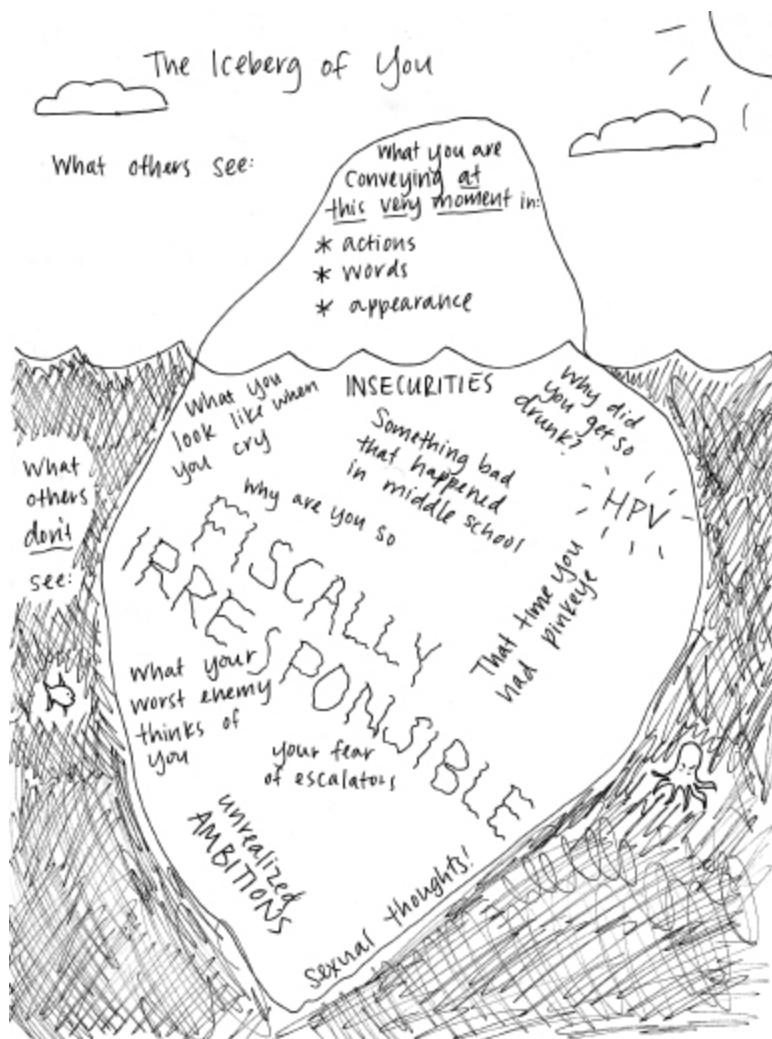 The Iceberg of You
What others see:
What you are
conveying at
this very moment in:
* actions
* words
* appearance
What others
don't
see:
What you
look like when
you cry
INSECURITIES
Why did
you get so
drunk?
Something bad
that happened
in middle school
HPV
Why are you so
FISCALLY
IRRESPONSIBLE
That time you
had pinkeye
What your
worst enemy
thinks of
you
your fear
of escalators
unrealized
AMBITIONS
sexual thoughts!